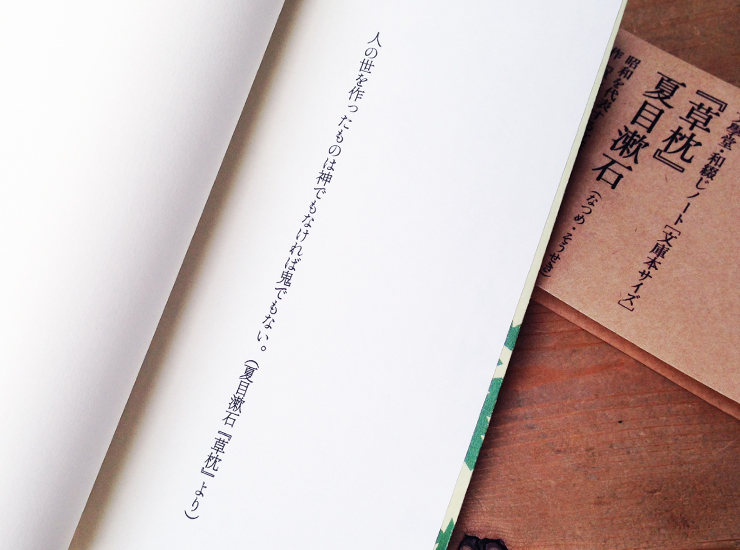 人の世を作ったものは神でもなければ鬼でもない。(夏目漱石『草枕』より)
學堂・和綴じノート[文庫本サイズ]
『草枕』
夏目漱石(なつめ・そうせき)
昭和を代表